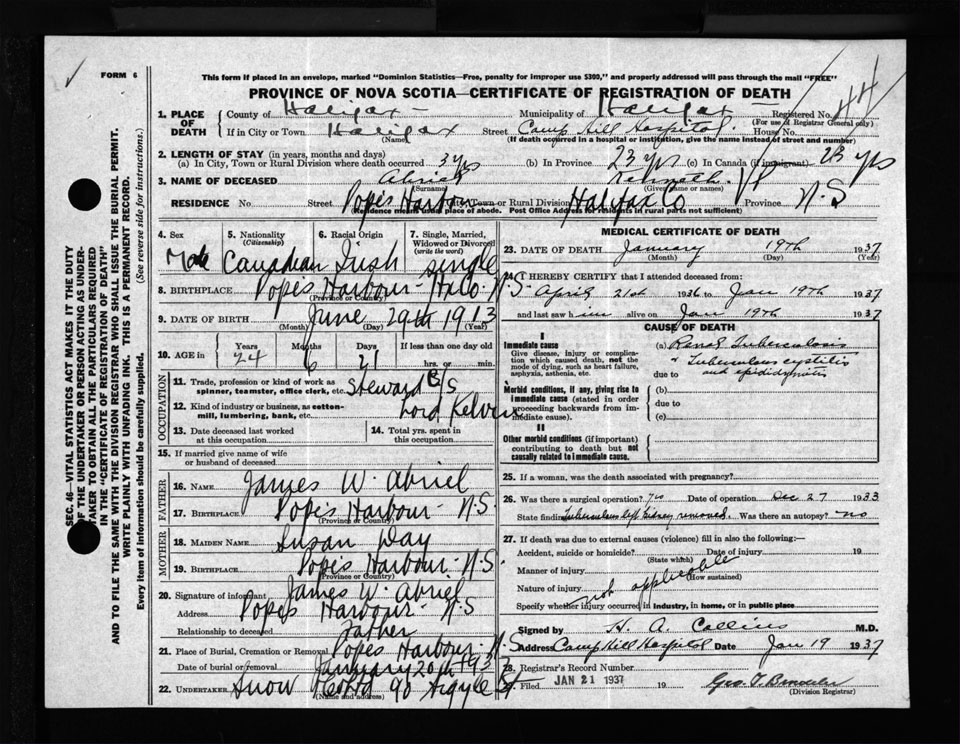 FORM 6
This form if placed in an envelope, marked "Dominion Statistics—Free, penalty for improper use $300," and properly addressed will pass through the mail "FREE"
PROVINCE OF NOVA SCOTIA—CERTIFICATE OF REGISTRATION OF DEATH
44
1. PLACE OF DEATH County of Halifax Municipality of Halifax Registered No.
(For use of Registrar General only)
If in City or Town Halifax Street Camp Hill Hospital House No.
(Name) (If death occurred in a hospital or institution, give the name instead of street and number)
2. LENGTH OF STAY (in years, months and days)
(a) In City, Town or Rural Division where death occurred 3 yrs (b) In Province 23 yrs (c) In Canada (if immigrant) 23 yrs
3. NAME OF DECEASED Abriel Kenneth
(Surname) (Given name or names)
RESIDENCE No. Street Popes Harbour City, Town or Rural Division Halifax Co Province N-S
(Residence means usual place of abode. Post Office Address for residents in rural parts not sufficient)
4. Sex Male
5. Nationality (Citizenship) Canadian
6. Racial Origin Irish
7. Single, Married, Widowed or Divorced (write the word) single
8. BIRTHPLACE Popes Harbour - Ha Co. N-S.
(Province or Country)
9. DATE OF BIRTH June 29th 1913
(Month) (Day) (Year)
10. AGE in Years Months Days If less than one day old
24 6 21 hrs. or min.
OCCUPATION
11. Trade, profession or kind of work as spinner, teamster, office clerk, etc. Steward
12. Kind of industry or business, as cotton-mill, lumbering, bank, etc. Lord Kelvin
13. Date deceased last worked at this occupation
14. Total yrs. spent in this occupation
15. If married give name of wife or husband of deceased
FATHER
16. NAME James W. Abriel
17. BIRTHPLACE Popes Harbour - N.S.
(Province or Country)
MOTHER
18. MAIDEN NAME Susan Day
19. BIRTHPLACE Popes Harbour - N.S.
(Province or Country)
20. Signature of informant James W. Abriel
Address Popes Harbour - N-S
Relationship to deceased Father
21. Place of Burial, Cremation or Removal Popes Harbour - N.S.
Date of burial or removal January 20th 193
22. UNDERTAKER Snow 90 Argyle St
(Name and address)
MEDICAL CERTIFICATE OF DEATH
23. DATE OF DEATH January 19th 1937
(Month) (Day) (Year)
24. I HEREBY CERTIFY that I attended deceased from:
April 21st 1936 to Jan 19th 1937
and last saw him alive on Jan 19th 1937
CAUSE OF DEATH
I
Immediate cause
Give disease, injury or complication which caused death, not the mode of dying, such as heart failure, asphyxia, asthenia, etc.
(a) Renal Tuberculosis
Tuberculous cystitis
due to and epididymitis
Morbid conditions, if any, giving rise to immediate cause (stated in order proceeding backwards from immediate cause).
(b)
due to
(c)
II
Other morbid conditions (if important) contributing to death but not causally related to immediate cause.
25. If a woman, was the death associated with pregnancy?
26. Was there a surgical operation? Yes Date of operation Dec 27 1933
State finding Tuberculous left kidney removed. Was there an autopsy? no
27. If death was due to external causes (violence) fill in also the following:—
Accident, suicide or homicide? Date of injury 19
(State which)
Manner of injury
(How sustained)
Nature of injury not applicable
Specify whether injury occurred in industry, in home, or in public place
Signed by H. A. Collins M.D.
Address Camp Hill Hospital Date Jan 19 1937
28. Registrar's Record Number
Filed JAN 21 1937 19
(Division Registrar)
SEC. 46—VITAL STATISTICS ACT MAKES IT THE DUTY
OF THE UNDERTAKER OR PERSON ACTING AS UNDER-
TAKER TO OBTAIN ALL THE PARTICULARS REQUIRED
IN THE "CERTIFICATE OF REGISTRATION OF DEATH"
AND TO FILE THE SAME WITH THE DIVISION REGISTRAR WHO SHALL ISSUE THE BURIAL PERMIT.
WRITE PLAINLY WITH UNFADING INK. THIS IS A PERMANENT RECORD.
Every item of information should be carefully supplied. (See reverse side for instructions.)